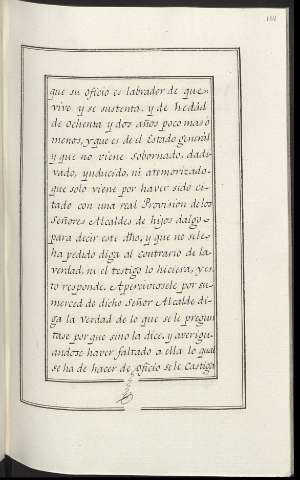 que su oficio es labrador de que
vive y se sustenta, y de hedád
de ochenta y dos años poco mas ò
menos, y que es de el Estado general
y que no viene sobornado, dadi
vado, ynducido, ni atemorizado
que solo viene por haver sido ci
tado con una real Provision de los
Señores Alcaldes de hijos dalgo
para dicir este dho, y que no se le
ha pedido diga al contrario de la
verdad, ni el testigo lo hiciera, y es
to responde. Aperciviosele por su
merced de dicho Señor Alcalde di
ga la verdad de lo que se le pregun
tase por que sino la dice, y averigu
andose haver faltado a ella lo qual
se ha de hacer de oficio se le Castiga